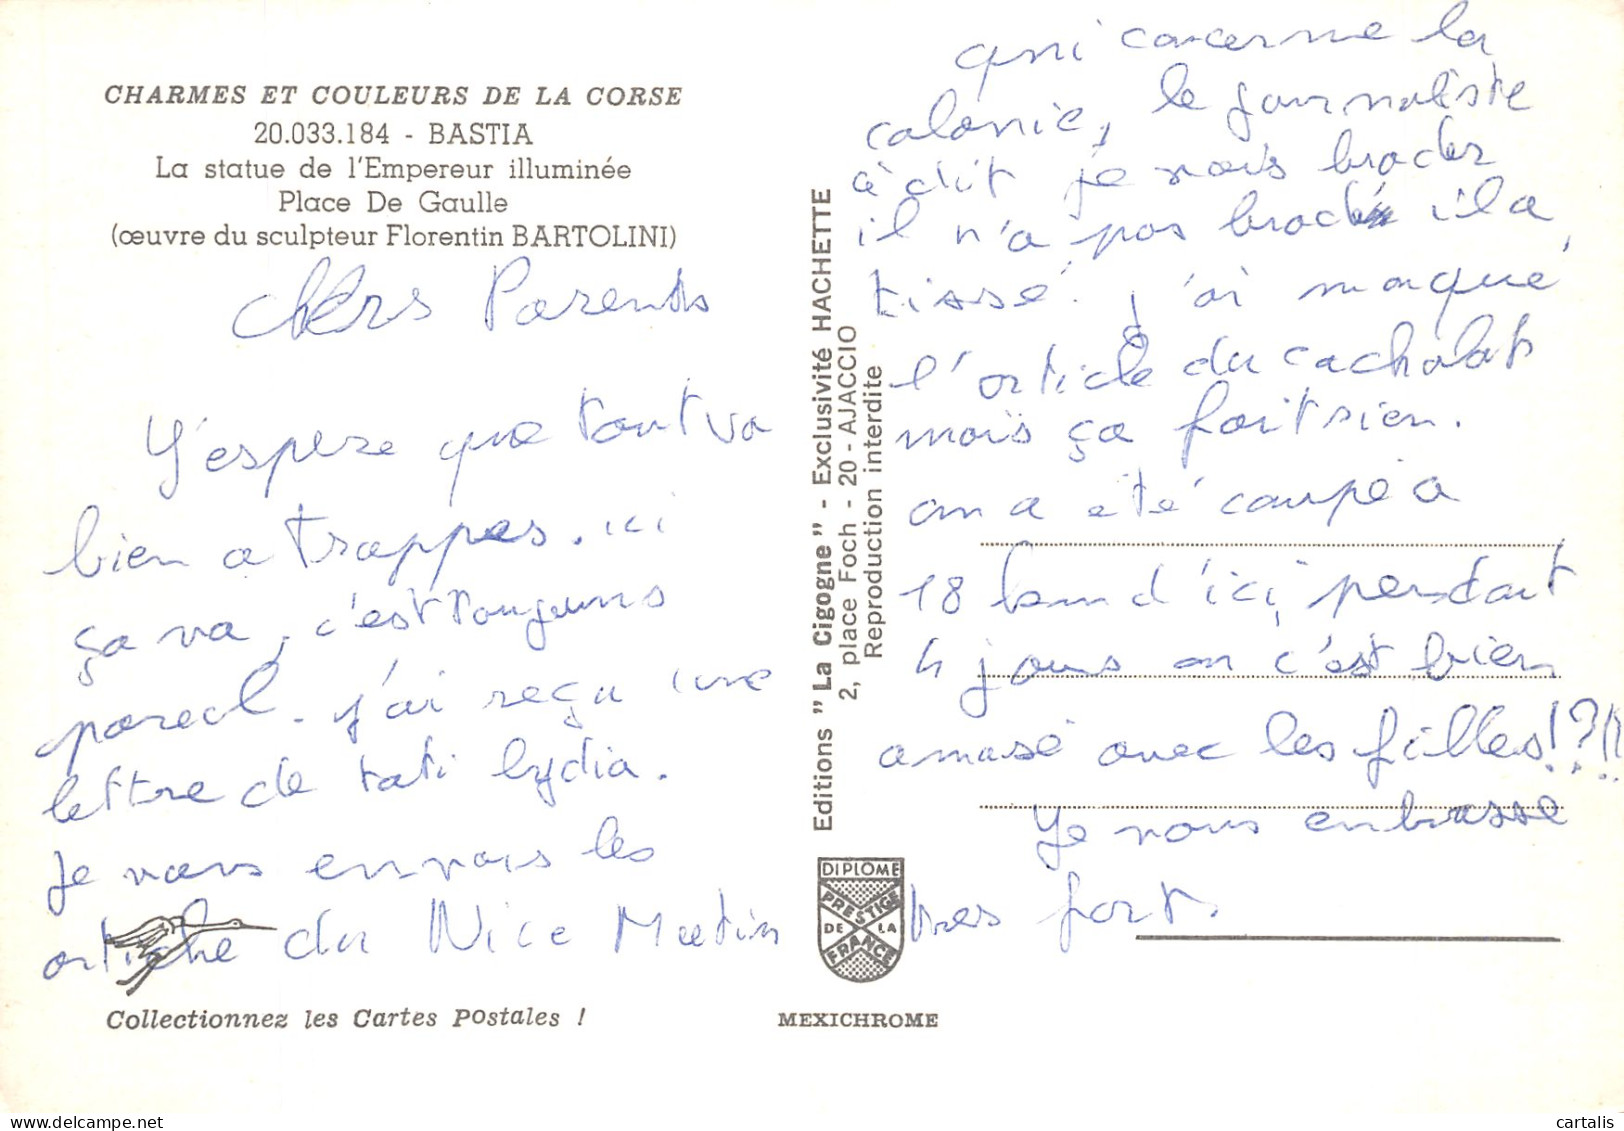 CHARMES ET COULEURS DE LA CORSE
20.033.184 - BASTIA
La statue de l'Empereur illuminée
Place De Gaulle
(œuvre du sculpteur Florentin BARTOLINI)
chers Parents
J'espere que tout va
bien a trappes. ici
ça va, c'est toujours
pareil. j'ai reçu une
lettre de tati lydia.
Je vous envois les
article du Nice Matin
Collectionnez les Cartes Postales !
Editions "La Cigogne" - Exclusivité HACHETTE
2, place Foch - 20 - AJACCIO
Reproduction interdite
DIPLOME
PRESTIGE
DE LA
FRANCE
MEXICHROME
qui concerne la
colonie, le journaliste
a dit je vais broder
il n'a pas brodé il a
tissé. j'ai manqué
l'article du cachalot
mais ça fait rien.
on a été campé a
18 km d'ici, pendant
4 jours on c'est bien
amusé avec les filles!?!!
Je vous embrasse
tres fort.
cartalis.com